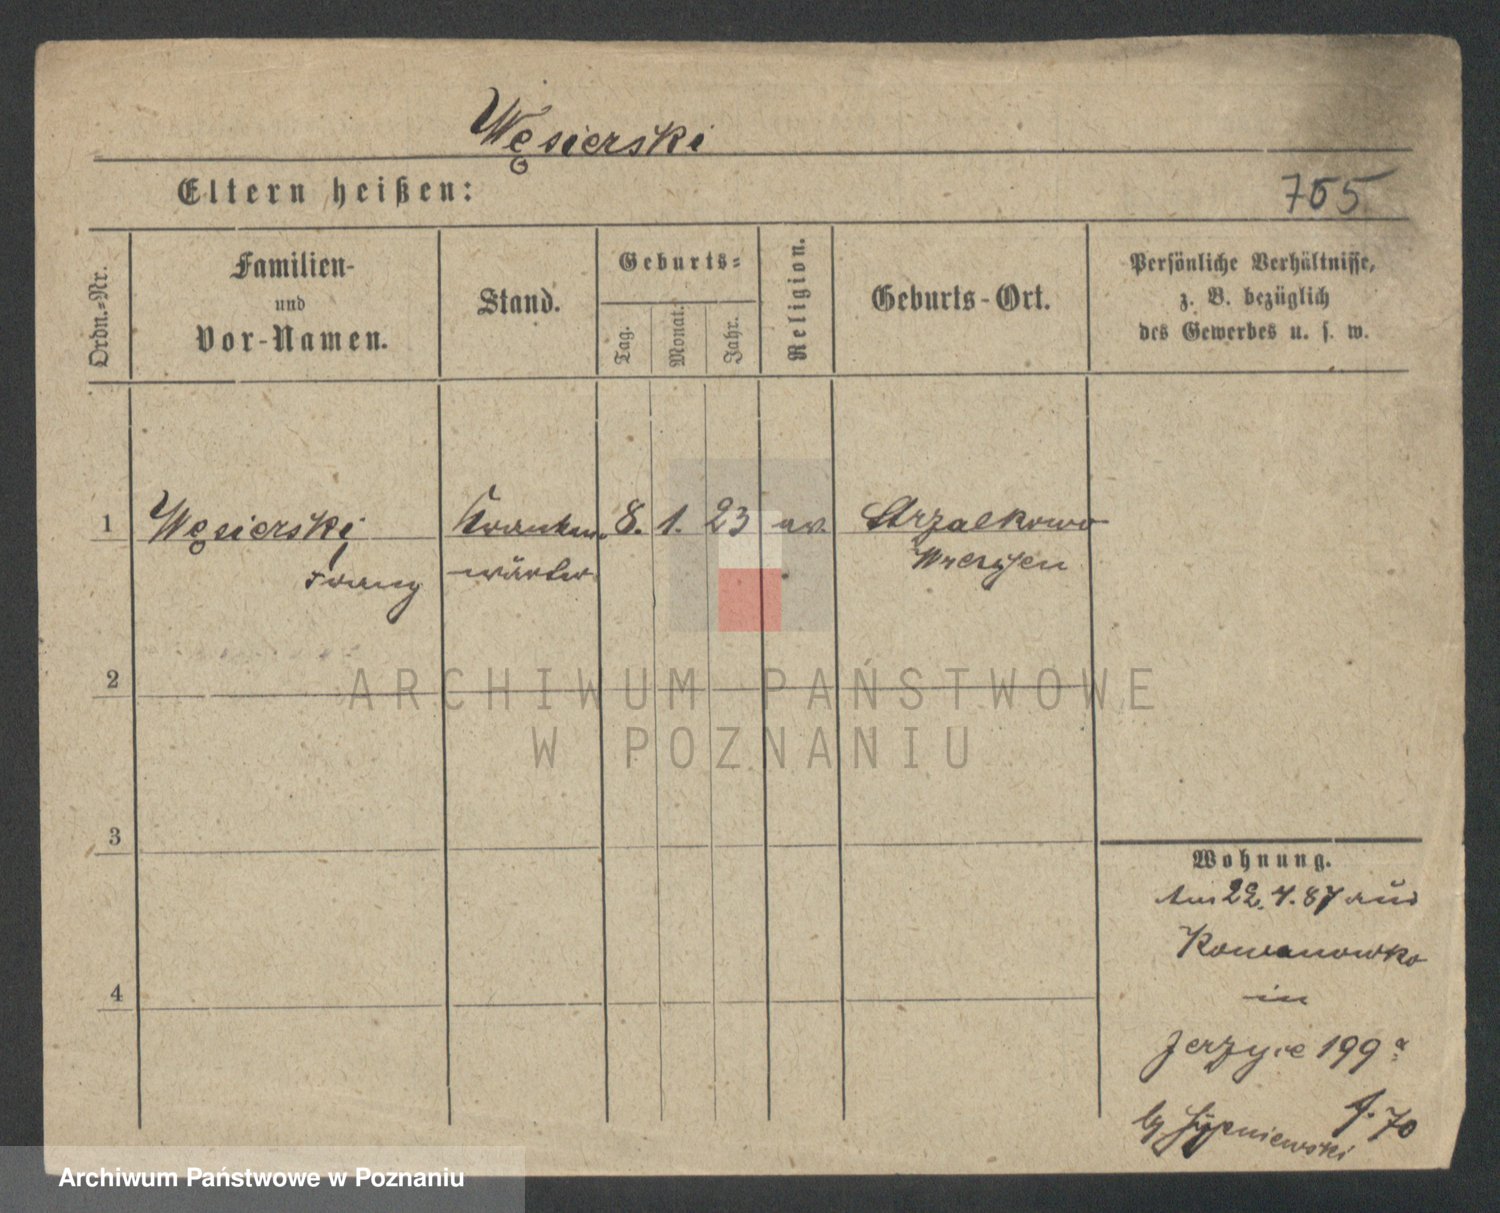 Węsierski
Eltern heißen:
755
Ordn.-Nr.
Familien-
und
Vor-Namen.
Stand.
Geburts-
Tag.
Monat.
Jahr.
Religion.
Geburts-Ort.
Persönliche Verhältnisse,
z. B. bezüglich
des Gewerbes u. s. w.
1
Węsierski
Franz
Kranken-
wärter
8. 1. 23
Strzalkowo
Wreschen
2
ARCHIWUM PAŃSTWOWE
W POZNANIU
3
4
Wohnung.
Am 22. 4. 87 aus
Kowanowko
in
Jerzyce 199 a
J. 70
Archiwum Państwowe w Poznaniu